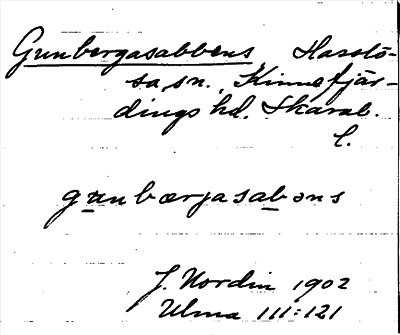 Gunbergasabbens, Hasslö-
sa sn., Kinnefjär-
dings hd. Skarab.
l.
gunbærjasabəns
J. Nordin 1902
Ulma 111:121